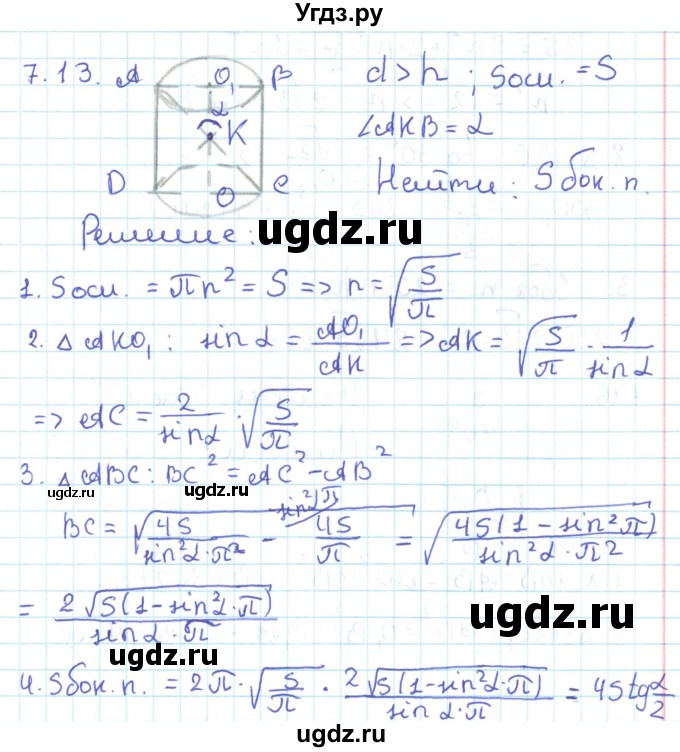 Угдз.ру
7.13. A O₁ B d > h ; Sосн. = S
α
K ∠AKB = α
D O C Найти: Sбок.п.
Решение:
ugdz.ru
1. Sосн. = πr² = S => r = √(S/π)
2. △AKO₁: sin α = AO₁/AK => AK = √(S/π) · 1/sin α
=> AC = 2/sin α · √(S/π)
ugdz.ru
3. △ABC: BC² = AC² - AB²
ugdz.ru
sin²π
BC = √(4S/(sin²α·π²) - 4S/π) = √(4S(1 - sin²π)/(sin²α·π²))
ugdz.ru
= 2√(S(1 - sin²α·π))/(sin α·π)
ugdz.ru
4. Sбок.п. = 2π · √(S/π) · 2√(S(1 - sin²α·π))/(sin α·π) = 4S tg α/2
ugdz.ru